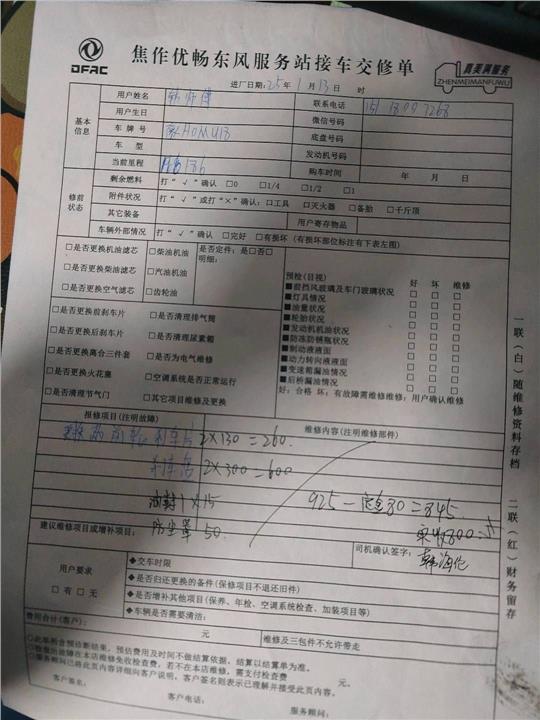 DFAC
焦作优畅东风服务站接车交修单
真美满服务
ZHENMEIMANFUWU
进厂日期:25年1月13日 时
基本信息
用户姓名
联系电话
用户生日
微信号码
车牌号 豫H0MU13
底盘号码
车型
发动机号码
当前里程
购车时间 年 月 日
修前状态
剩余燃料 打“√”确认 □0 □1/4 □1/2 □1
附件状况 打“√”或打“×”确认：□工具 □灭火器 □备胎 □千斤顶
其它装备 用户寄存物品
车辆外部情况 打“√”确认 □完好 □有损坏（有损坏部位标注有下表左图）
□是否更换机油滤芯
□是否更换柴油滤芯
□是否更换空气滤芯
□柴油机油
□汽油机油
□齿轮油
是否定件：是□否□
明细：
□是否更换前刹车片
□是否更换后刹车片
□是否更换离合三件套
□是否更换火花塞
□是否清理节气门
□是否清理排气筒
□是否清理尿素箱
□是否为电气维修
□空调系统是否正常运行
□其它项目维修及更换
预检(目视) 好 坏 维修
■前挡风玻璃及车门玻璃状况 □ □ □
■灯具情况 □ □ □
■油量状况 □ □ □
■轮胎状况 □ □ □
■发动机机油状况 □ □ □
■防冻防锈瓶状况 □ □ □
■制动液液面 □ □ □
■动力转向液液面 □ □ □
■变速箱漏油情况 □ □ □
■后桥漏油情况 □ □ □
好：合格 坏：有故障需维修维修：用户确认维修
报修项目(注明故障)
维修内容(注明维修部件)
刹车片 2×130=260
2×300=600
油封1×15
925
845
防尘罩 50
建议维修项目或增补项目：
司机确认签字：
用户要求
□有 □无
◆交车时限
◆是否归还更换的备件(保修项目不退还旧件)
◆是否增补其他项目(保养、年检、空调系统检查、加装项目等)
◆车辆是否需要清洁：
费用合计(客户)： 元
维修及三包件不允许带走
◇此单据含预估断结果，预估费用及时间不做结算依据，结算以结算单为准。
◇检查的故障在本店维修免收检查费，若不在本店维修，需支付检查费 元。
◇服务顾问已将此页内容详细向客户说明，客户签名则表示已理解并接受此页内容。
客户签名：
客户电话：
服务顾问：
一联（白）随维修资料存档
二联（红）财务留存